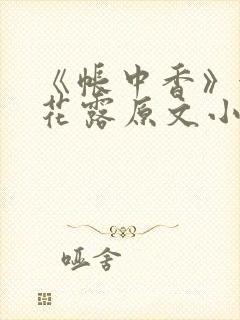 《帐中香》
花露原文小
哑舍